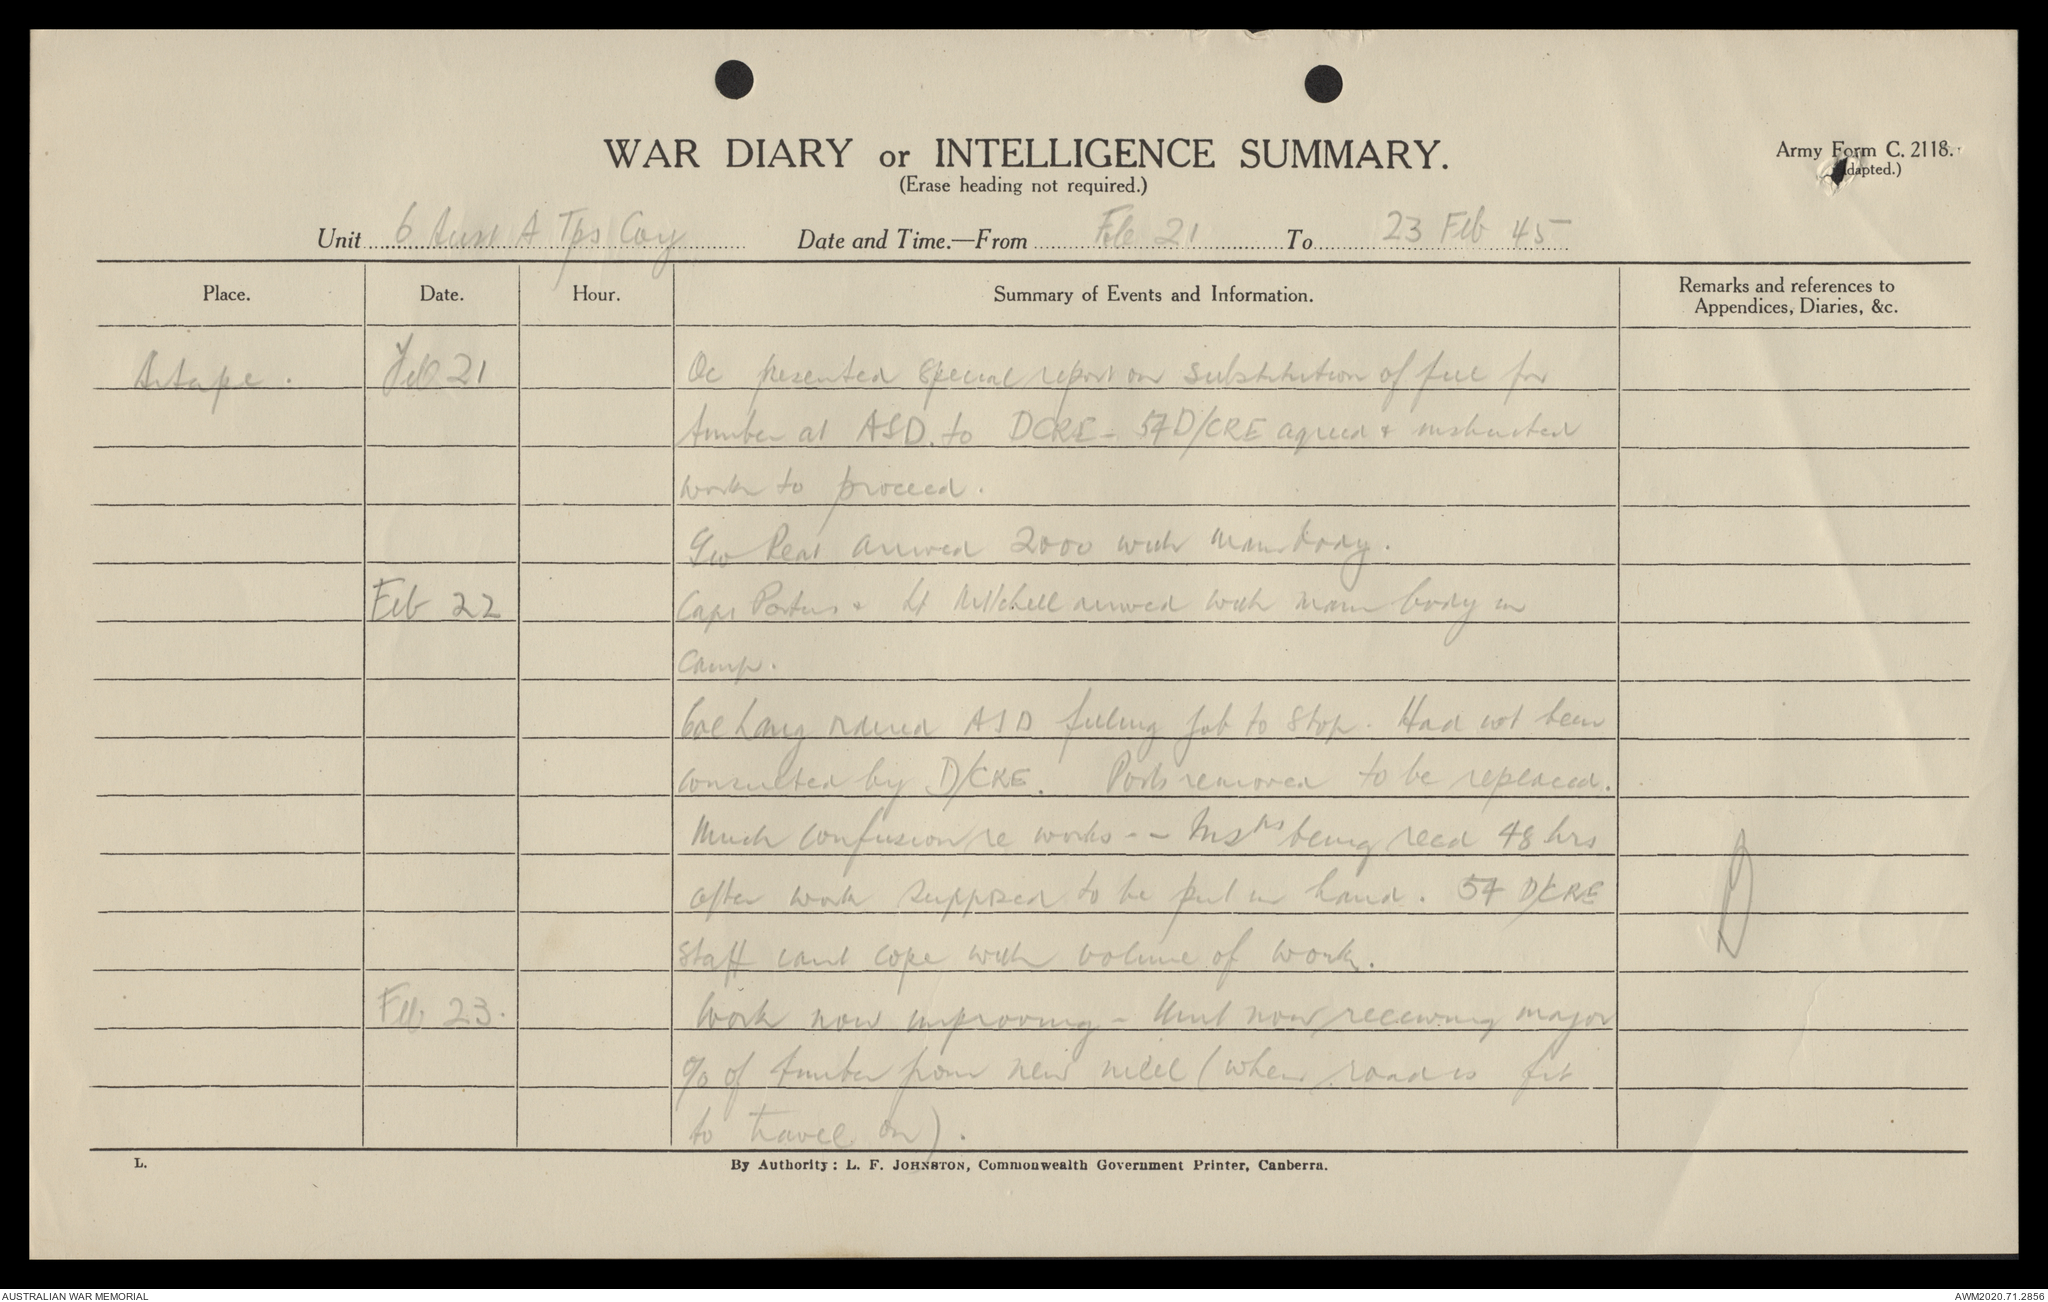 WAR DIARY or INTELLIGENCE SUMMARY.
(Erase heading not required.)
Army Form C. 2118.
(Adapted.)
Unit 6 Aust A Tps Coy Date and Time.—From Feb 21 To 23 Feb 45
Place. Date. Hour. Summary of Events and Information. Remarks and references to Appendices, Diaries, &c.
Aitape. Feb 21 Oc presented special report on substitution of fill for
timber at ASD. to DCRE - 54 D/CRE agreed & instructed
work to proceed.
Peat arrived 2000 with main body.
Feb 22 Capt Porteus & Lt Mitchell arrived with main body in
camp.
Col Lang ordered ASD filling job to stop. Had not been
consulted by D/CRE. Posts removed to be replaced.
Much confusion re works -- being recd 48 hrs
after work supposed to be put in hand. 54 D/CRE
staff cant cope with volume of work.
Feb 23. Work now improving - Unit now receiving major
% of timber from new mill (when road is fit
to travel on).
L.
By Authority: L. F. JOHNSTON, Commonwealth Government Printer, Canberra.
AUSTRALIAN WAR MEMORIAL
AWM2020.71.2856